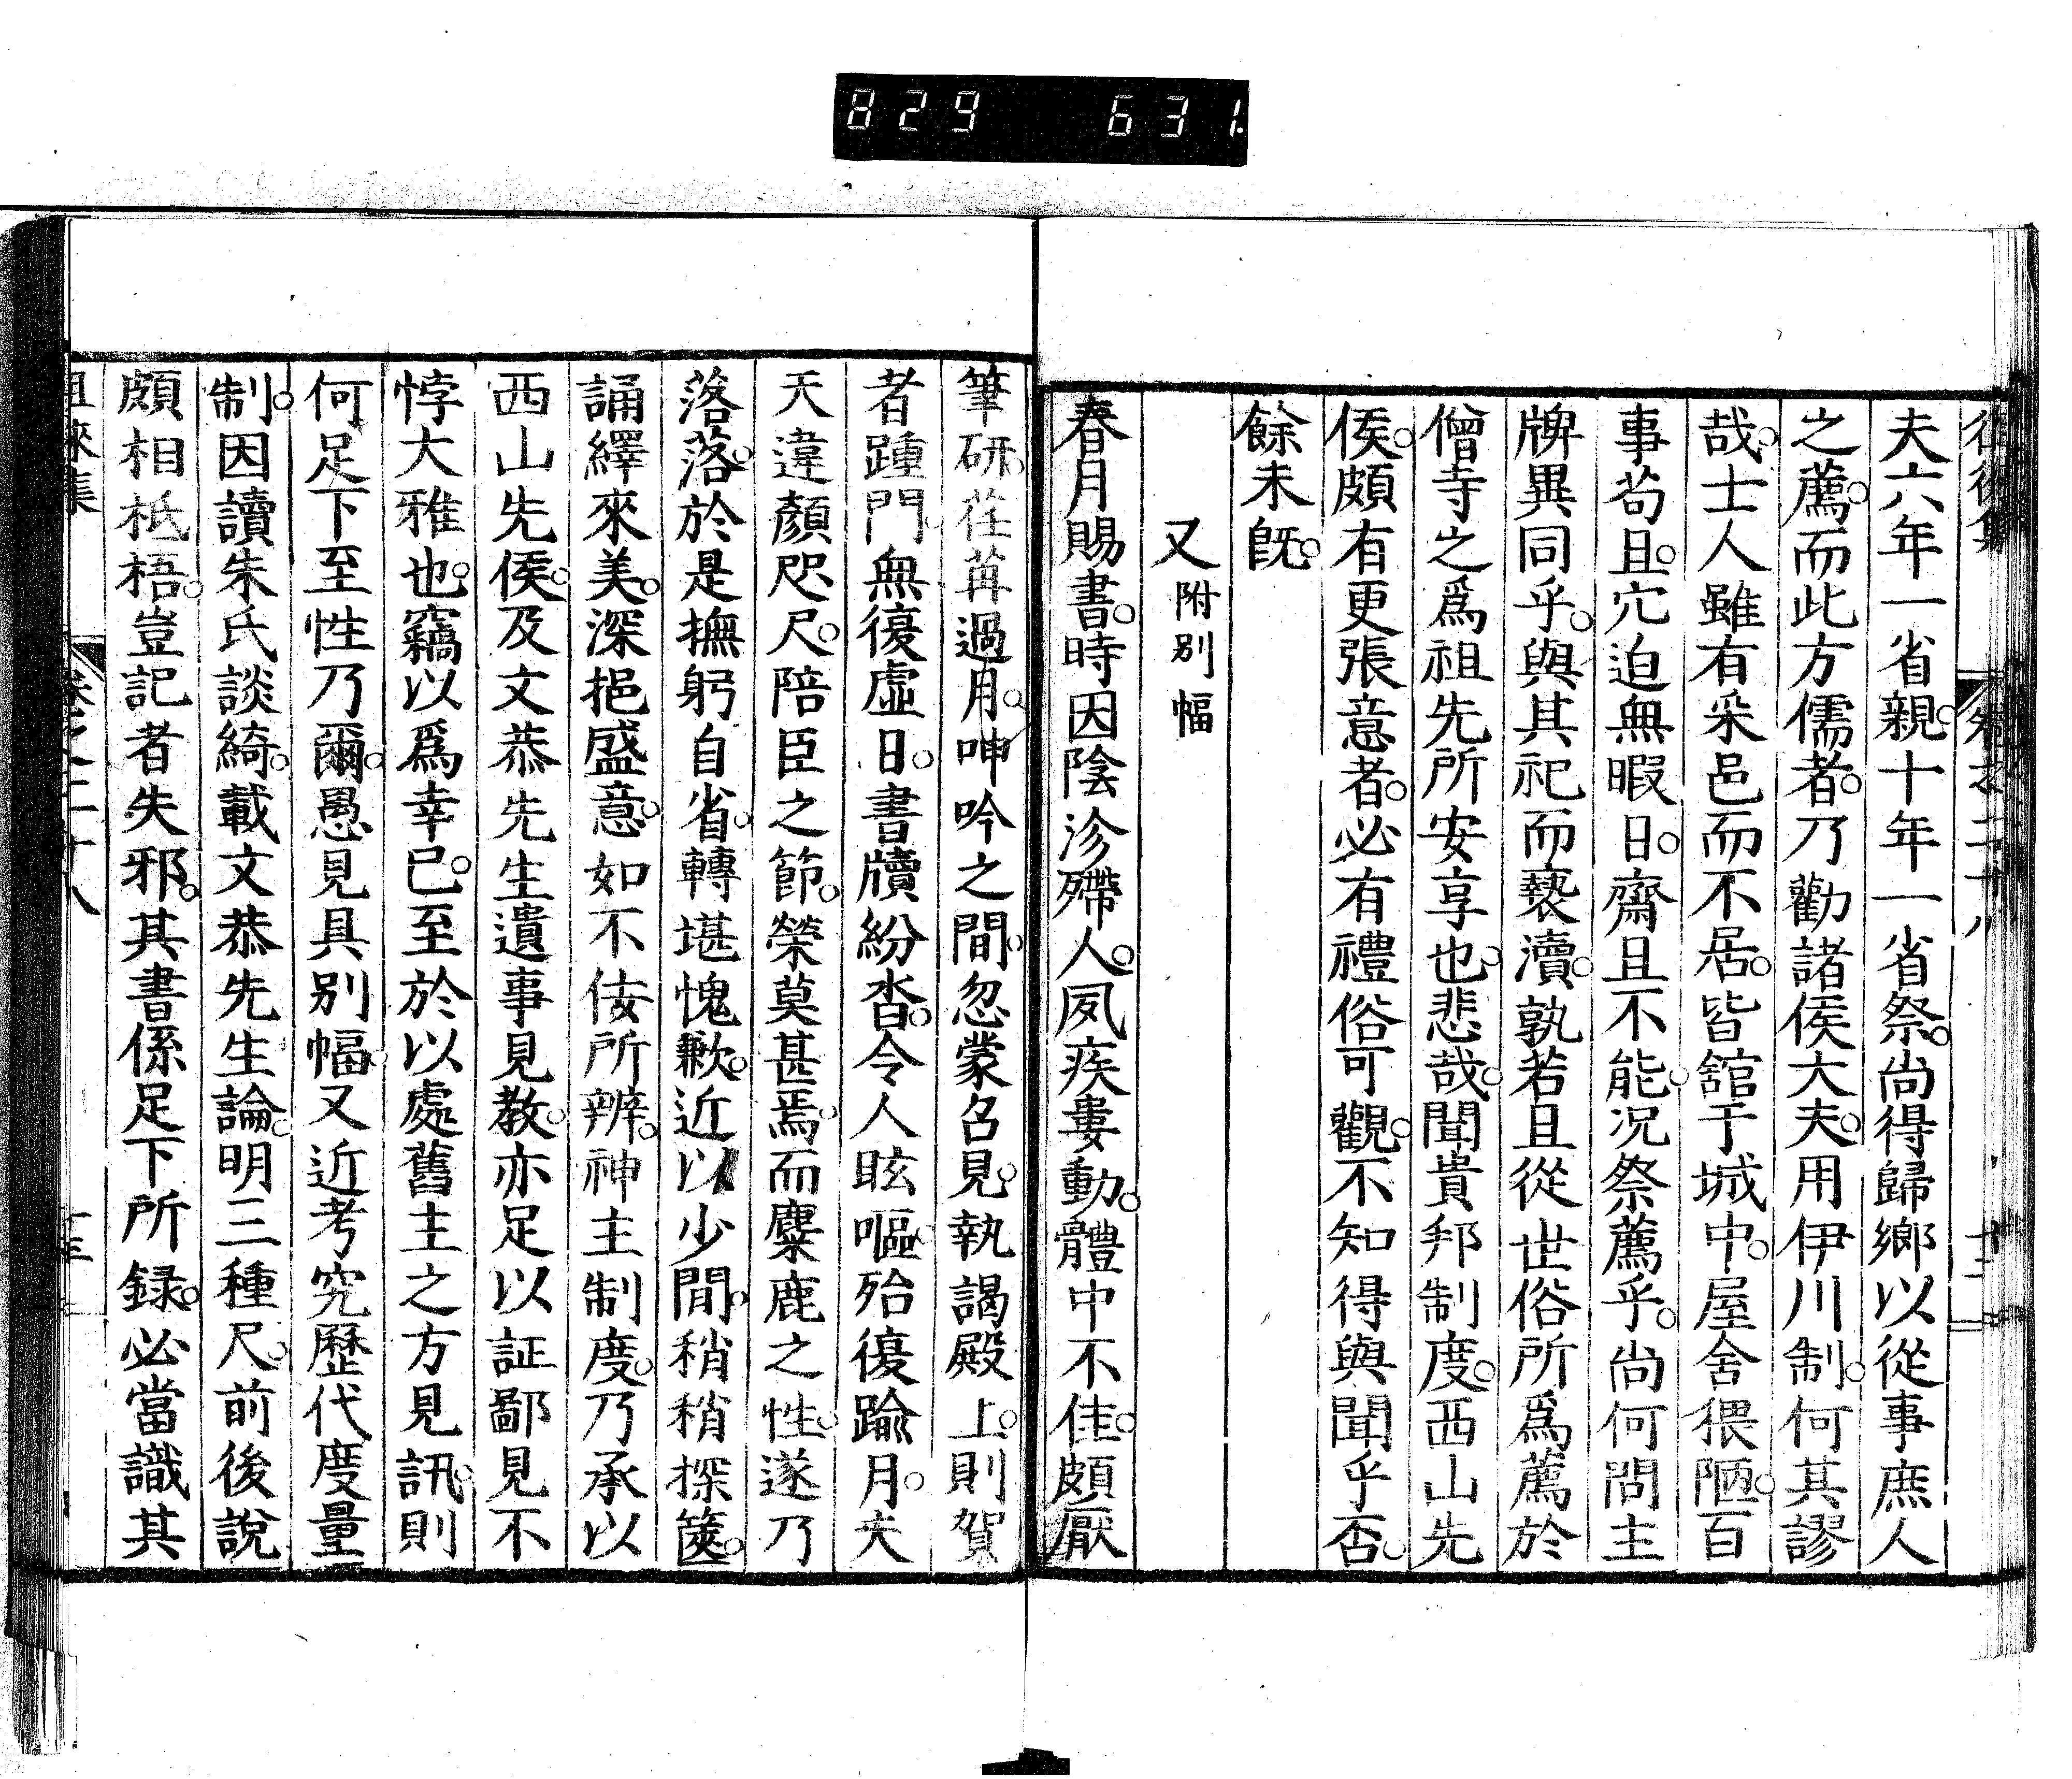 829 631
夫六年一省親。十年一省祭。尚得歸鄉以從事庶人
之薦。而此方儒者。乃勸諸侯大夫。用伊川制。何其謬
哉。士人雖有采邑而不居。皆舘于城中。屋舍猥陋。百
事苟且。宂迫無暇日。齋且不能。況祭薦乎。尚何問主
牌異同乎。與其祀而褻瀆。孰若且從世俗所爲薦於
僧寺之爲祖先所安享也。悲哉。聞貴邦制度。西山先
侯。頗有更張意者。必有禮俗可觀。不知得與聞乎否。
餘未旣。
又附別幅
春月賜書。時因陰沴殢人。夙疾婁動。體中不佳。頗厭
筆研。荏苒過月。呻吟之間。忽蒙召見。執謁殿上。則賀
者踵門。無復虛日。書牘紛沓。令人眩嘔。殆復踰月。夫
天違顏咫尺。陪臣之節。榮莫甚焉。而麋鹿之性。遂乃
落落。於是撫躬自省。轉堪愧歉。近以少間。稍稍探篋。
誦繹來美。深挹盛意。如不佞所辨。神主制度。乃承以
西山先侯。及文恭先生遺事見教。亦足以証鄙見不
悖大雅也。竊以爲幸已。至於以處舊主之方見訊。則
何足下至性乃爾。愚見具別幅。又近考究歷代度量
制。因讀朱氏談綺。載文恭先生論。明三種尺。前後說
頗相柢梧。豈記者失邪。其書係足下所録。必當識其
徂徠集 卷之二十八